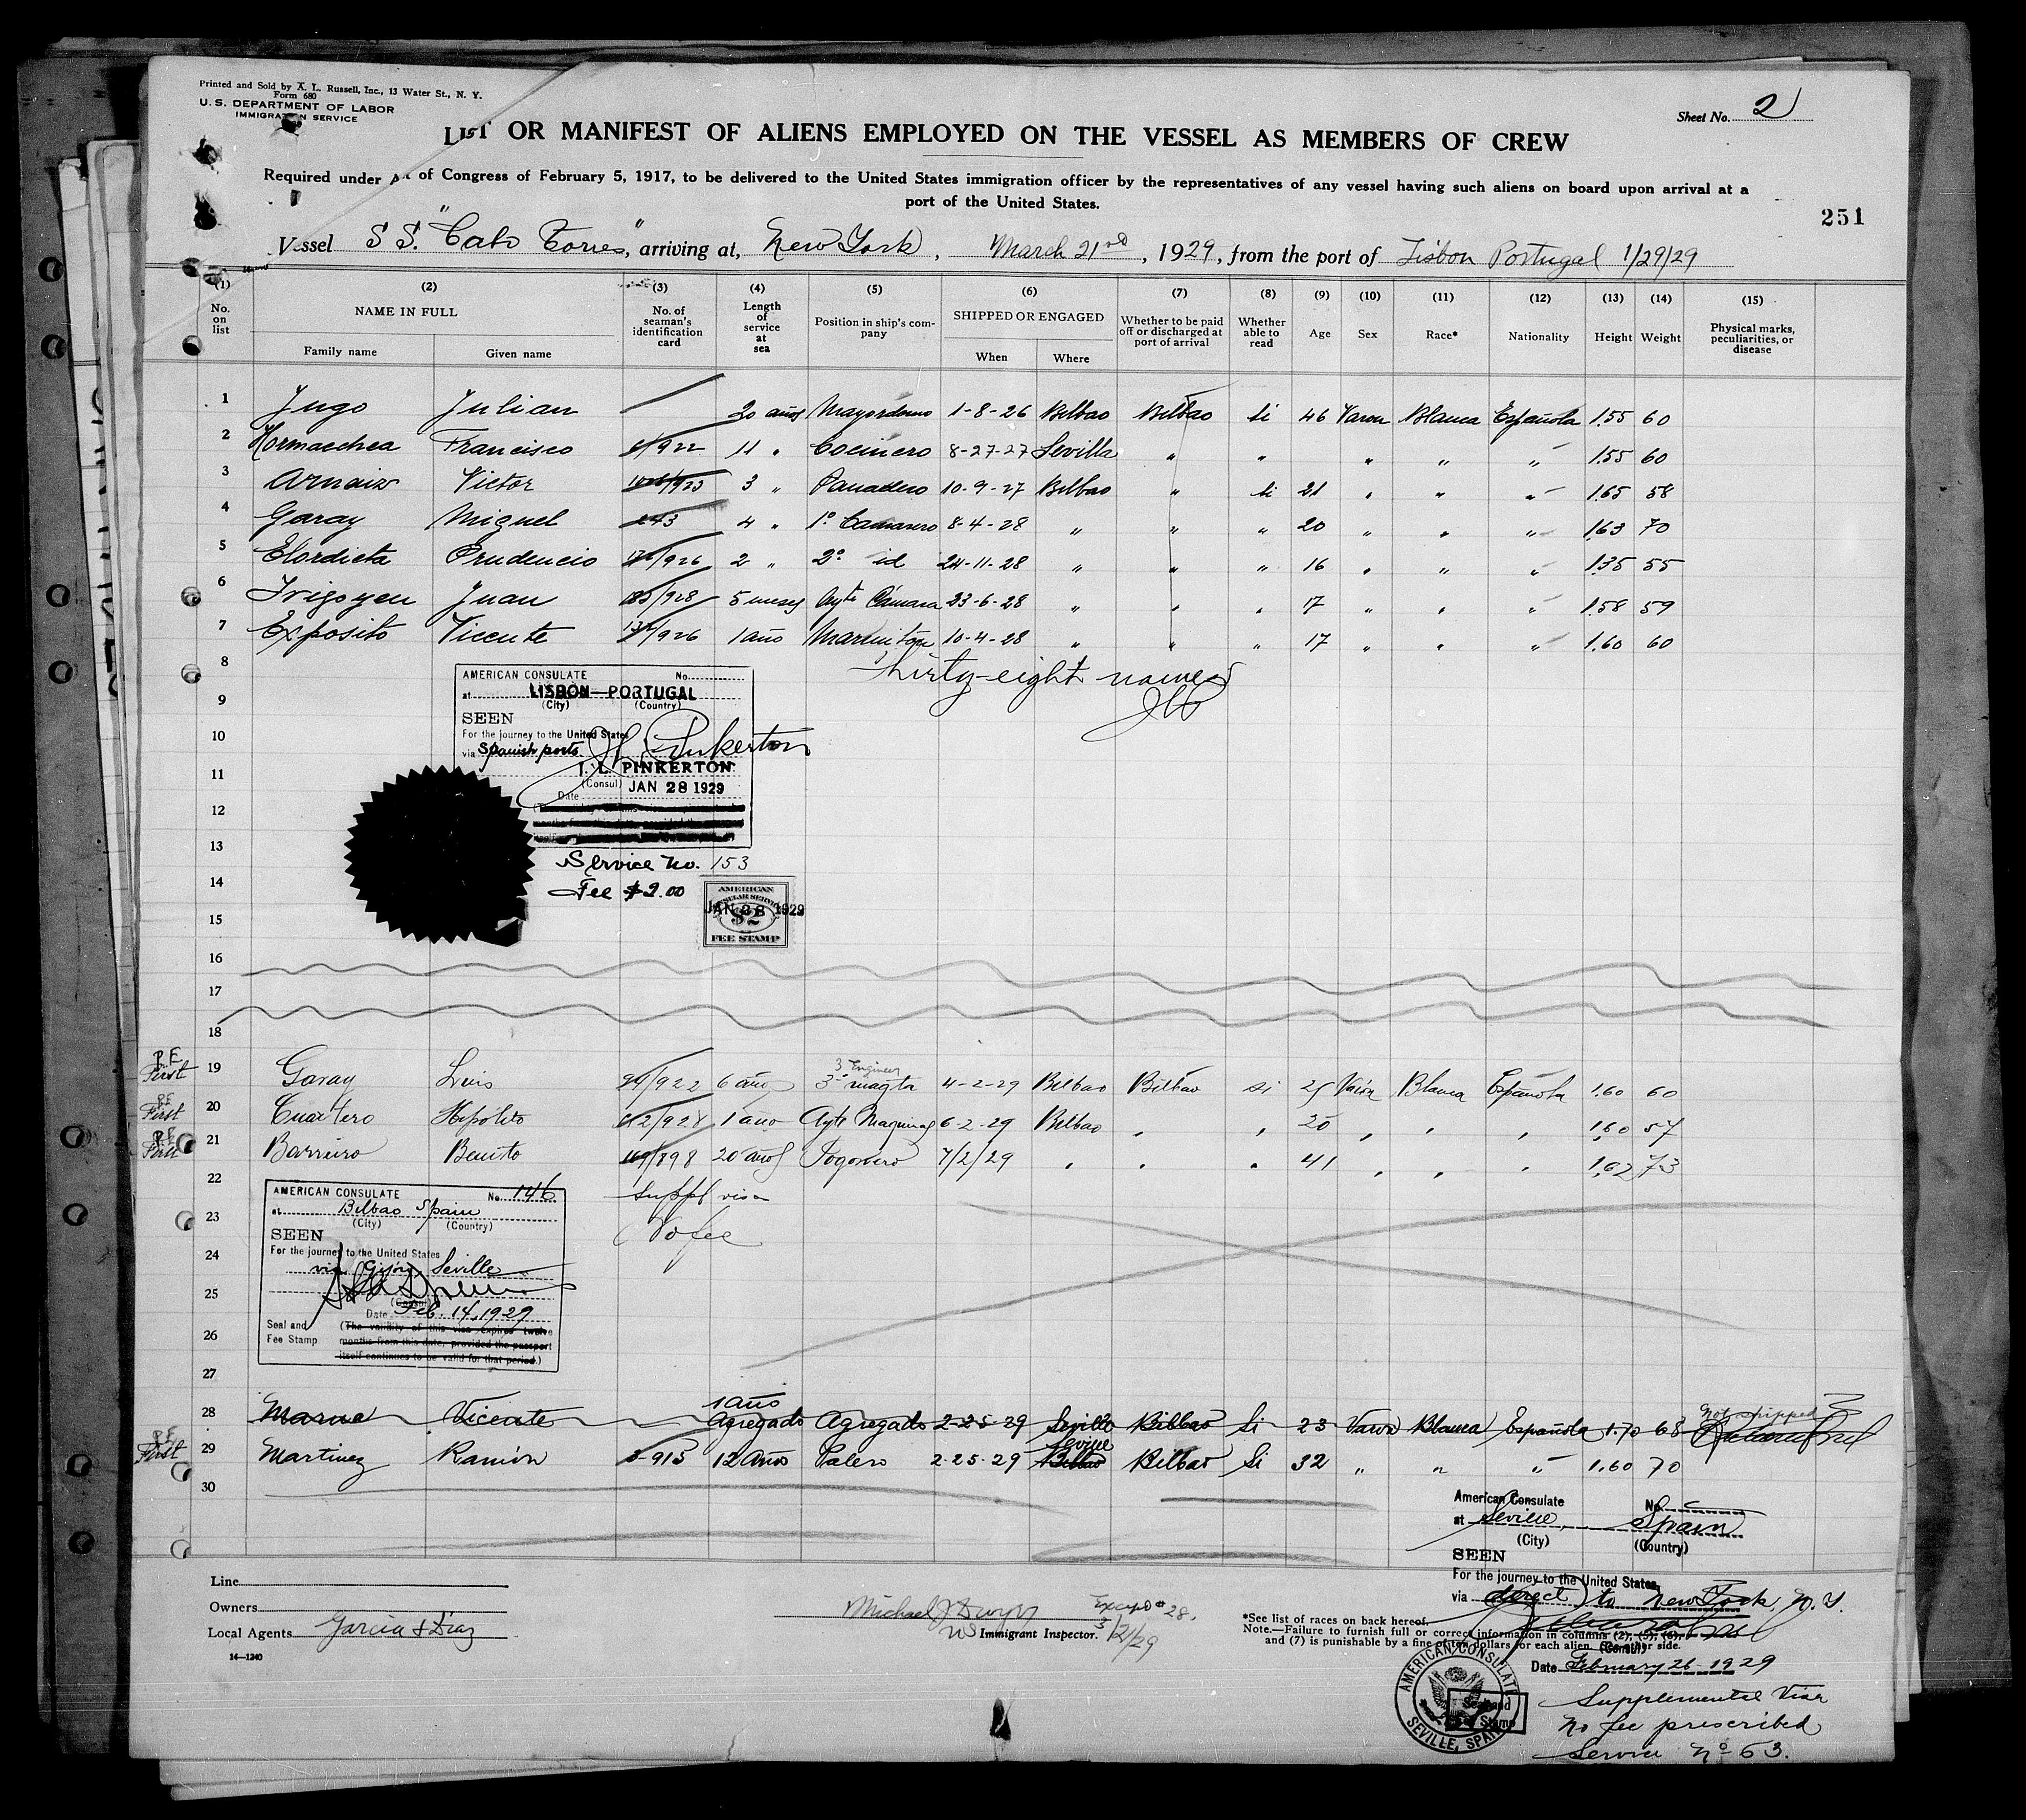 Printed and Sold by A. L. Russell, Inc., 13 Water St., N. Y.
Form 680
U. S. DEPARTMENT OF LABOR
IMMIGRATION SERVICE
Sheet No. 2
LIST OR MANIFEST OF ALIENS EMPLOYED ON THE VESSEL AS MEMBERS OF CREW
Required under Act of Congress of February 5, 1917, to be delivered to the United States immigration officer by the representatives of any vessel having such aliens on board upon arrival at a
port of the United States.
251
Vessel S S. "Cabo Torres", arriving at, New York, March 21, 1929, from the port of Lisbon Portugal 1/29/29
(1) (2) (3) (4) (5) (6) (7) (8) (9) (10) (11) (12) (13) (14) (15)
No. on list NAME IN FULL Family name Given name No. of seaman's identification card Length of service at sea Position in ship's company SHIPPED OR ENGAGED When Where Whether to be paid off or discharged at port of arrival Whether able to read Age Sex Race* Nationality Height Weight Physical marks, peculiarities, or disease
1 Jugo Julian 20 años Mayordomo 1-8-26 Bilbao Bilbao Si 46 Varon Blanca Española 1.55 60
2 Hormaechea Francisco /922 11 " Cocinero 8-27-27 Sevilla " " " " " 1.55 60
3 Arnaiz Victor /923 3 " Panadero 10-9-27 Bilbao " Si 21 " " " 1.65 58
4 Garay Miguel 243 4 " 1º Camarero 8-4-28 " " " 20 " " " 1.63 70
5 Elordieta Prudencio /926 2 " 2º id 24-11-28 " " " 16 " " " 1.35 55
6 Irigoyen Juan 185/928 5 meses Ayte Cámara 23-6-28 " " " 17 " " " 1.58 59
7 Exposito Vicente /926 1 año Marmiton 10-4-28 " " " 17 " " " 1.60 60
8 Thirty-eight names
9
AMERICAN CONSULATE No.
at LISBON—PORTUGAL
(City) (Country)
SEEN
For the journey to the United States
via Spanish ports.
10
11
I. L. PINKERTON
(Consul)
Date JAN 28 1929
12
13
Service No. 153
14
Fee $2.00
AMERICAN
CONSULAR SERVICE
JAN 28 1929
$2
FEE STAMP
15
16
17
18
P.E. First 19 Garay Luis /922 6 años 3 Engineer 3º maqta 4-2-29 Bilbao Bilbao si 25 Varón Blanca Española 1.60 60
P.E. First 20 Cuartero Hipólito /928 1 año Ayte Maquinas 6-2-29 Bilbao " " 20 " " " 1.60 57
P.E. First 21 Barreiro Benito 169/898 20 años Fogonero 7/2/29 " " " 41 " " " 1.62 73
22 Suppl visa
23 No fee
AMERICAN CONSULATE No. 146
at Bilbao Spain
(City) (Country)
SEEN
For the journey to the United States
via Gijon, Seville
24
25
(Consul)
Date Feb. 14, 1929
Seal and Fee Stamp (The validity of this visa expires twelve
months from this date, provided the passport
itself continues to be valid for that period.)
26
27
28 Vicente 1 año Agregado Agregado 2-25-29 Sevilla Bilbao Si 23 Varon Blanca Española 1.70 68 Not shipped
P.E. First 29 Martinez Ramón 913 12 Años Palero 2-25-29 Seville Bilbao Bilbao Si 32 " " " 1.60 70
30
American Consulate No.
at Seville, Spain
(City) (Country)
SEEN
For the journey to the United States,
via (direct) to New York, N.Y.
(Consul)
Date February 26-1929
Supplemental Visa
No fee prescribed
Service Nº 63.
AMERICAN CONSULATE
SEVILLE, SPAIN
Seal and
Fee Stamp
Line
Owners
Local Agents Garcia & Diaz
14—1240
Michael J Dwyer Except # 28,
US Immigrant Inspector. 3/21/29
*See list of races on back hereof.
Note.—Failure to furnish full or correct information in columns (2), (5), (6),
and (7) is punishable by a fine of ten dollars for each alien. See other side.